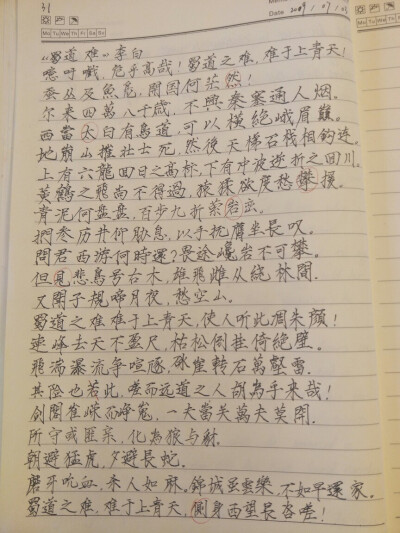 31
Mo Tu We Th Fr Sa Su
Date 2009 / 07 /
《蜀道难》李白
噫吁嚱，危乎高哉！蜀道之难，难于上青天！
蚕丛及魚凫，開囯何茫然！
尔来四萬八千歲，不與秦塞通人烟。
西當太白有鳥道，可以横絶峨眉巔。
地崩山摧壮士死，然後天梯石栈相鈎连。
上有六龍回日之高标，下有冲波逆折之回川。
黃鶴之飛尚不得過，猿猱欲度愁攀援。
青泥何盘盘，百步九折萦岩峦。
捫参历井仰胁息，以手抚膺坐長叹。
問君西游何時還？畏途巉岩不可攀。
但見悲鳥号古木，雄飛雌从绕林間。
又聞子規啼月夜，愁空山。
蜀道之难难于上青天，使人听此凋朱颜！
连峰去天不盈尺，枯松倒挂倚絶壁。
飛湍瀑流争喧豗，砯崖转石萬壑雷。
其险也若此，嗟而远道之人胡為乎来哉！
剑閣崔嵘而峥嵬，一夫當关萬夫莫開。
所守或匪亲，化為狼与豺。
朝避猛虎，夕避長蛇。
磨牙吮血，朱人如麻。錦城虽雲樂，不如早還家。
蜀道之难，难于上青天，侧身西望長咨嗟！